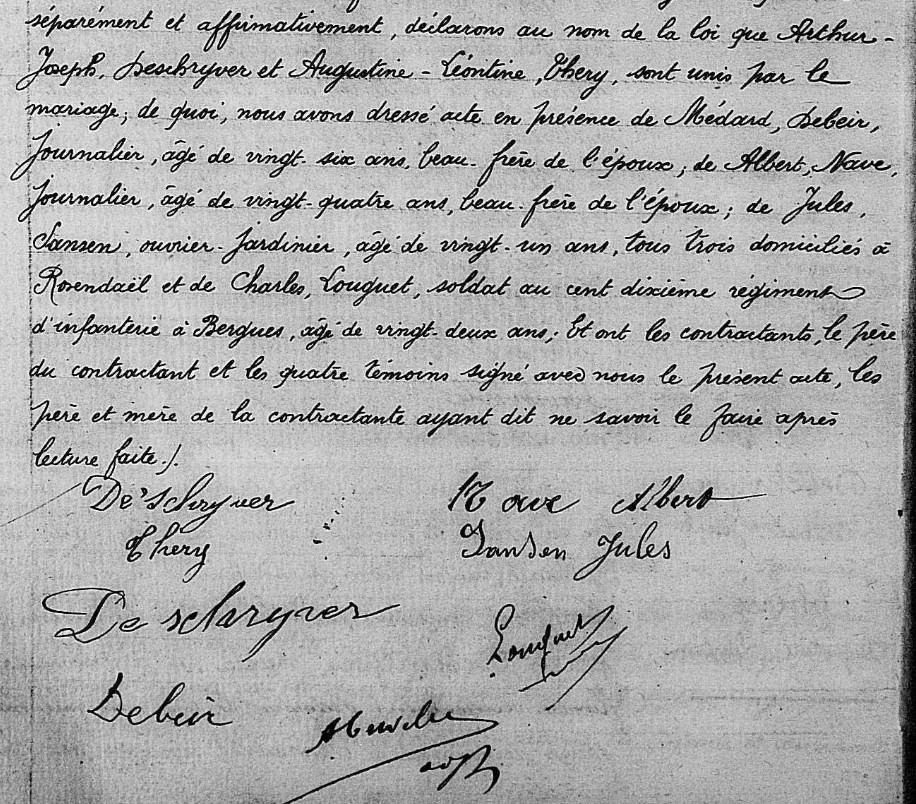 séparément et affirmativement, déclarons au nom de la loi que Arthur-
Joseph, Deschryver et Augustine-Léontine, Thery, sont unis par le
mariage; de quoi, nous avons dressé acte en présence de Médard, Debeir,
Journalier, âgé de vingt-six ans, beau-frère de l'époux; de Albert, Nave,
Journalier, âgé de vingt-quatre ans, beau-frère de l'époux; de Jules,
Jansen, ouvrier-Jardinier, âgé de vingt-un ans, tous trois domiciliés à
Rosendaël et de Charles, Louguet, soldat au cent dixième régiment
d'infanterie à Bergues, âgé de vingt-deux ans; Et ont les contractants, le père
du contractant et les quatre témoins signé avec nous le présent acte, les
père et mère de la contractante ayant dit ne savoir le faire après
lecture faite./.
De'schryver Nave Albert
Thery Jansen Jules
De schryver
Louguet
Debeir